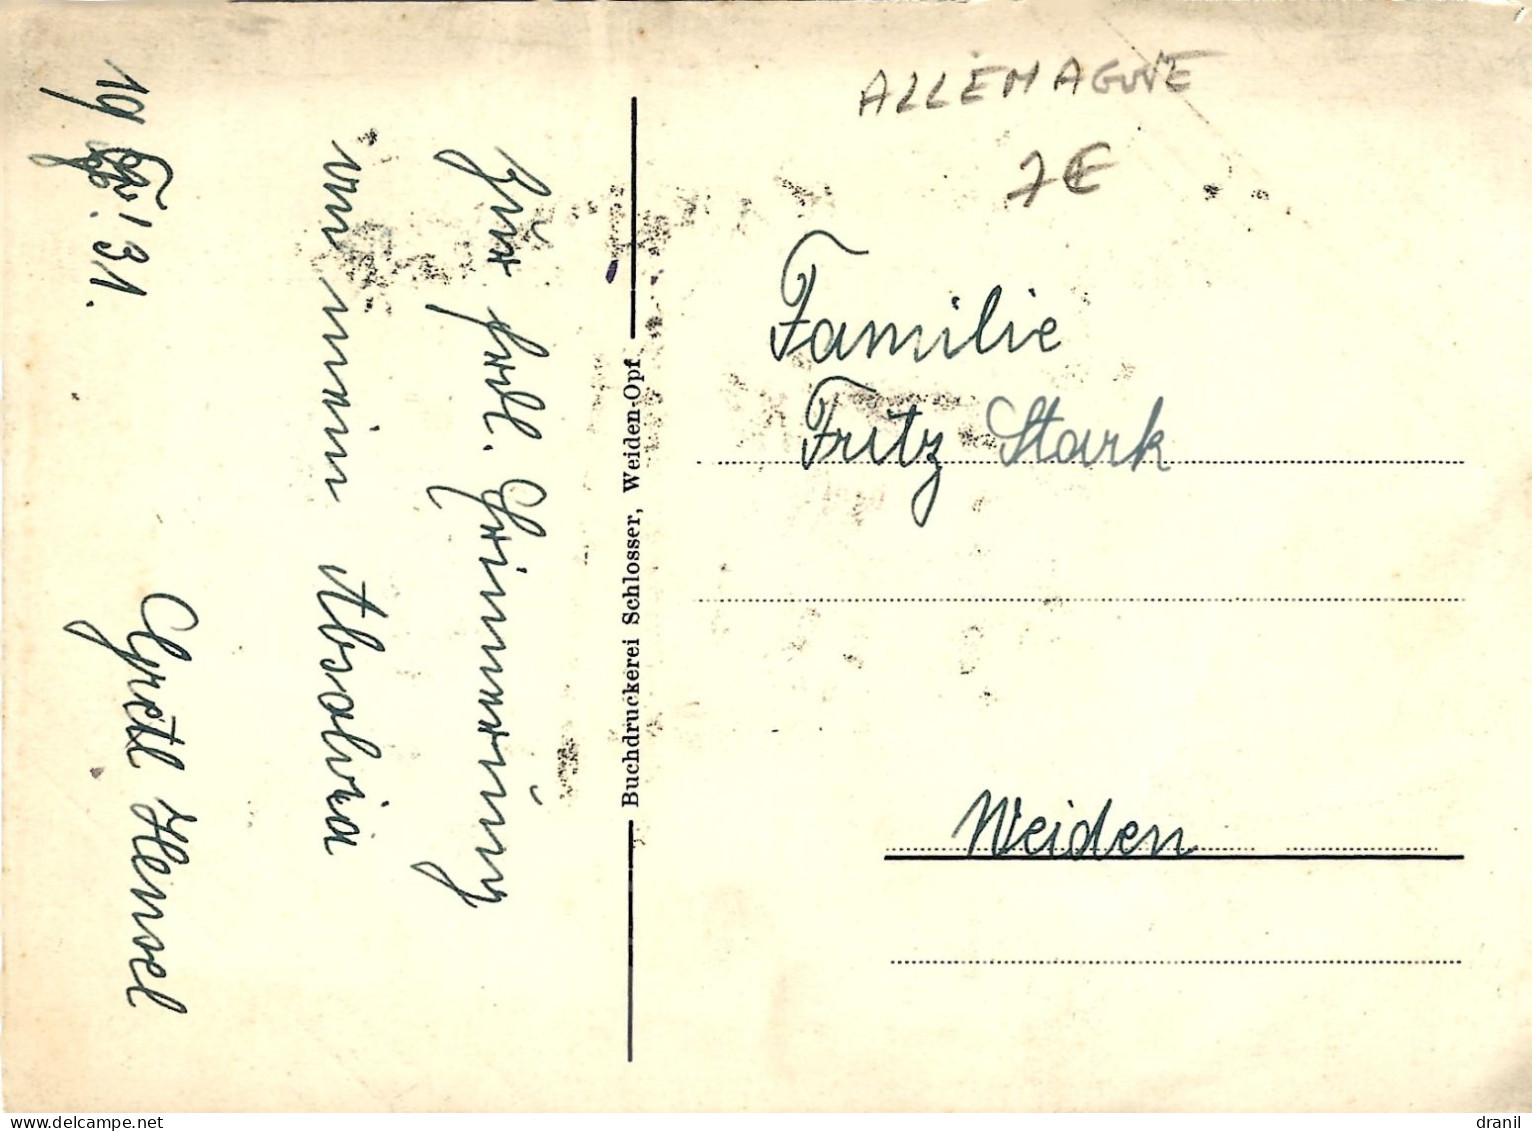 ALLEMAGNE
7€
Zur frdl. Erinnerung
an meine Absolvia
Gretl Hensel
19 31.
Buchdruckerei Schlosser, Weiden-Opf
Familie
Fritz Stark
Weiden
delcampe.net
dranil